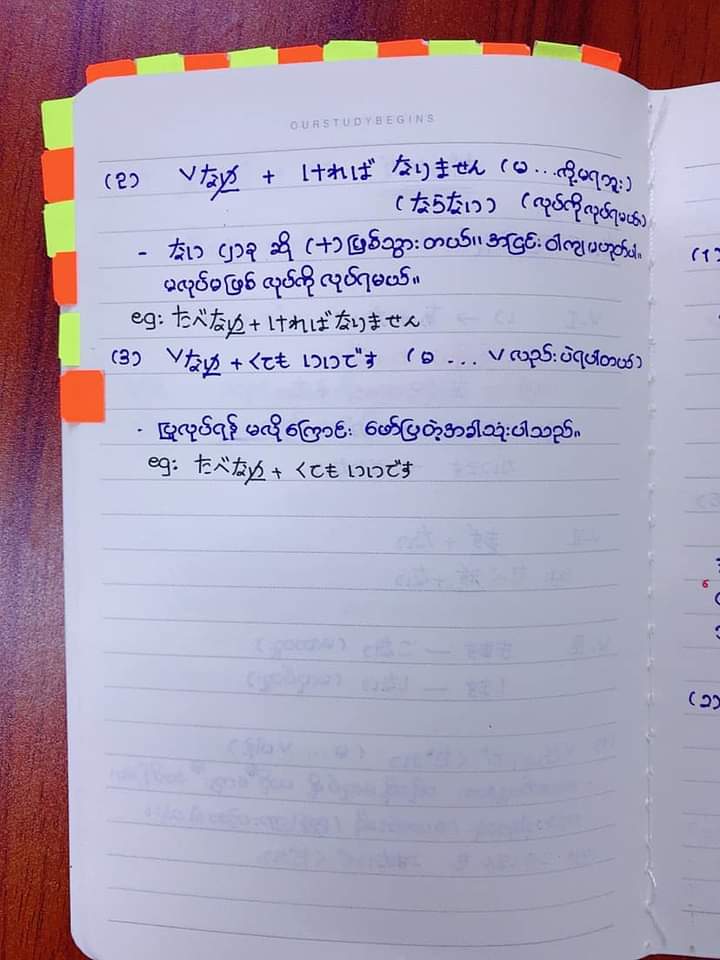 OURSTUDYBEGINS
(၃) Vない + ければ なりません (မ ... လို့မရဘူး)
(ならない) (လုပ်ကိုလုပ်ရမယ်)
- ない ၂ခု ဆို (+) ဖြစ်သွားတယ်။ အငြင်းဝါကျ မဟုတ်ပါ။
မလုပ်မဖြစ် လုပ်ကို လုပ်ရမယ်။
eg: たべない + ければなりません
(3) Vない + くても いいです (မ ... V လည်းပဲရပါတယ်)
- ပြုလုပ်ရန် မလိုကြောင်း ဖော်ပြတဲ့အခါသုံးပါသည်။
eg: たべない + くても いいです
(1)
(၁)